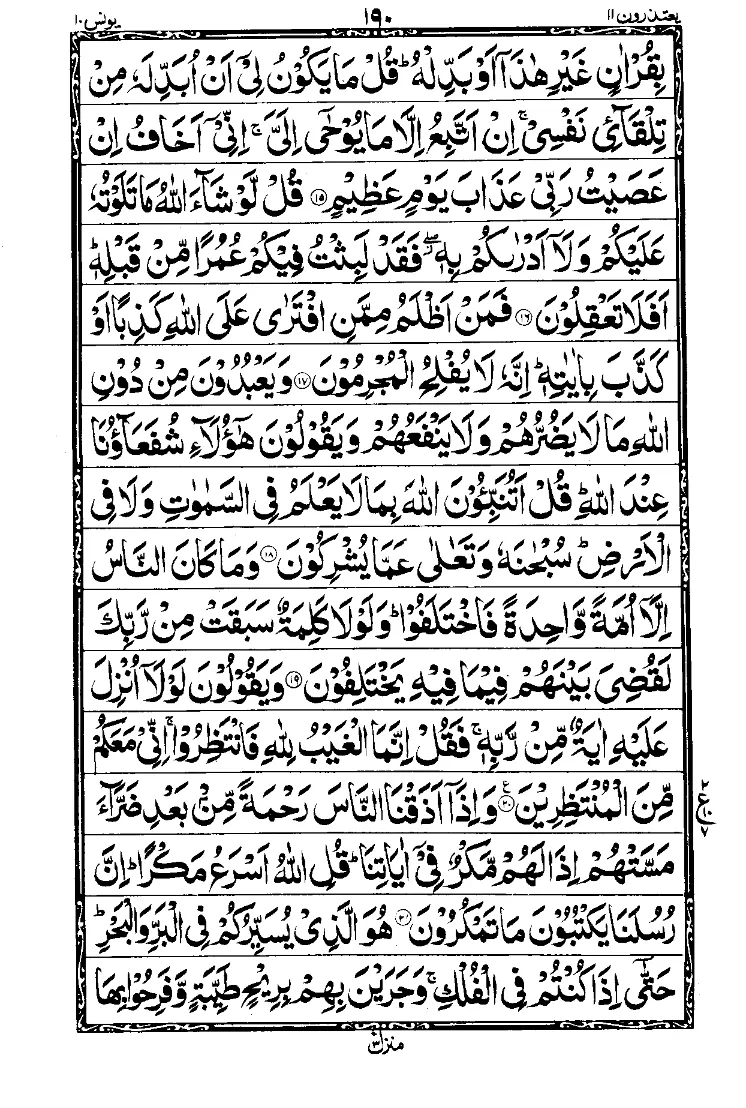 یعتذرون ۱۱ ۱۹۰ یونس ۱۰
بِقُرْاٰنٍ غَیْرِ هٰذَاۤ اَوْ بَدِّلْهُ ؕ قُلْ مَا یَكُوْنُ لِیْۤ اَنْ اُبَدِّلَهٗ مِنْ
تِلْقَآئِ نَفْسِیْ ۚ اِنْ اَتَّبِعُ اِلَّا مَا یُوْحٰۤی اِلَیَّ ۚ اِنِّیْۤ اَخَافُ اِنْ
عَصَیْتُ رَبِّیْ عَذَابَ یَوْمٍ عَظِیْمٍ ۝۱۵ قُلْ لَّوْ شَآءَ اللّٰهُ مَا تَلَوْتُهٗ
عَلَیْكُمْ وَلَاۤ اَدْرٰىكُمْ بِهٖ ۖ٘ فَقَدْ لَبِثْتُ فِیْكُمْ عُمُرًا مِّنْ قَبْلِهٖ ؕ
اَفَلَا تَعْقِلُوْنَ ۝۱۶ فَمَنْ اَظْلَمُ مِمَّنِ افْتَرٰی عَلَی اللّٰهِ كَذِبًا اَوْ
كَذَّبَ بِاٰیٰتِهٖ ؕ اِنَّهٗ لَا یُفْلِحُ الْمُجْرِمُوْنَ ۝۱۷ وَیَعْبُدُوْنَ مِنْ دُوْنِ
اللّٰهِ مَا لَا یَضُرُّهُمْ وَلَا یَنْفَعُهُمْ وَیَقُوْلُوْنَ هٰۤؤُلَآءِ شُفَعَآؤُنَا
عِنْدَ اللّٰهِ ؕ قُلْ اَتُنَبِّـُٔوْنَ اللّٰهَ بِمَا لَا یَعْلَمُ فِی السَّمٰوٰتِ وَلَا فِی
الْاَرْضِ ؕ سُبْحٰنَهٗ وَتَعٰلٰی عَمَّا یُشْرِكُوْنَ ۝۱۸ وَمَا كَانَ النَّاسُ
اِلَّاۤ اُمَّةً وَّاحِدَةً فَاخْتَلَفُوْا ؕ وَلَوْلَا كَلِمَةٌ سَبَقَتْ مِنْ رَّبِّكَ
لَقُضِیَ بَیْنَهُمْ فِیْمَا فِیْهِ یَخْتَلِفُوْنَ ۝۱۹ وَیَقُوْلُوْنَ لَوْلَاۤ اُنْزِلَ
عَلَیْهِ اٰیَةٌ مِّنْ رَّبِّهٖ ۚ فَقُلْ اِنَّمَا الْغَیْبُ لِلّٰهِ فَانْتَظِرُوْا ۚ اِنِّیْ مَعَكُمْ
مِّنَ الْمُنْتَظِرِیْنَ ۝۲۰ وَاِذَاۤ اَذَقْنَا النَّاسَ رَحْمَةً مِّنْۢ بَعْدِ ضَرَّآءَ
مَسَّتْهُمْ اِذَا لَهُمْ مَّكْرٌ فِیْۤ اٰیَاتِنَا ؕ قُلِ اللّٰهُ اَسْرَعُ مَكْرًا ؕ اِنَّ
رُسُلَنَا یَكْتُبُوْنَ مَا تَمْكُرُوْنَ ۝۲۱ هُوَ الَّذِیْ یُسَیِّرُكُمْ فِی الْبَرِّ وَالْبَحْرِ ؕ
حَتّٰۤی اِذَا كُنْتُمْ فِی الْفُلْكِ ۚ وَجَرَیْنَ بِهِمْ بِرِیْحٍ طَیِّبَةٍ وَّفَرِحُوْا بِهَا
۲ ع ۱۰ ۷
منزل ۳